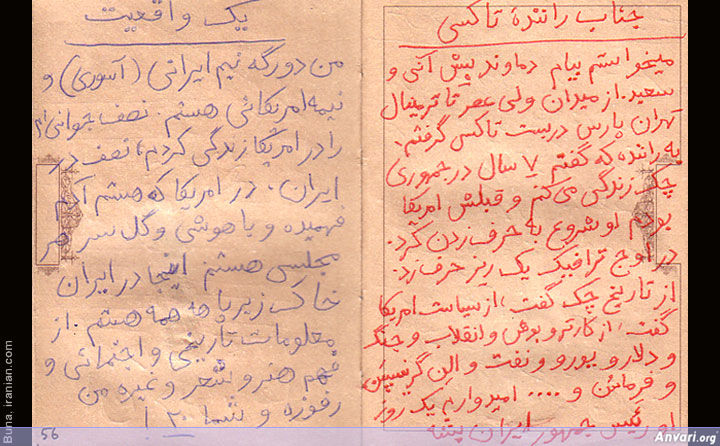 جناب رانندهٔ تاکسی
میخواستم بیام دماوند پیش آتی و
سعید. از میدان ولی عصر تا ترمینال
تهران پارس دربست تاکسی گرفتم.
به راننده که گفتم ۷ سال در جمهوری
چک زندگی می کنم و قبلش امریکا
بودم او شروع به حرف زدن کرد.
در اوج ترافیک یک ریز حرف زد.
از تاریخ چک گفت، از سیاست امریکا
گفت، از کارتر و بوش و انقلاب و جنگ
و دلار و یورو و نفت و الن گرینسپن
و فرماش و .... امیدوارم یک روز
رئیس جمهور ایران بشه
یک واقعیت
من دورگه نیم ایرانی (آسوری) و
نیمه امریکائی هستم. نصف جوانی ام
را در امریکا زندگی کردم، نصف در
ایران. در امریکا که هستم آدم
فهمیده و باهوشی و گل سر هر
مجلسی هستم اینجا در ایران
خاک زیر پا همه هستم. از
معلومات تاریخی و اجتماعی و
فهم هنر و شعر و غیره من
رفوزه و شما ۲۰!
56
Buna. iranian.com
Anvari.org